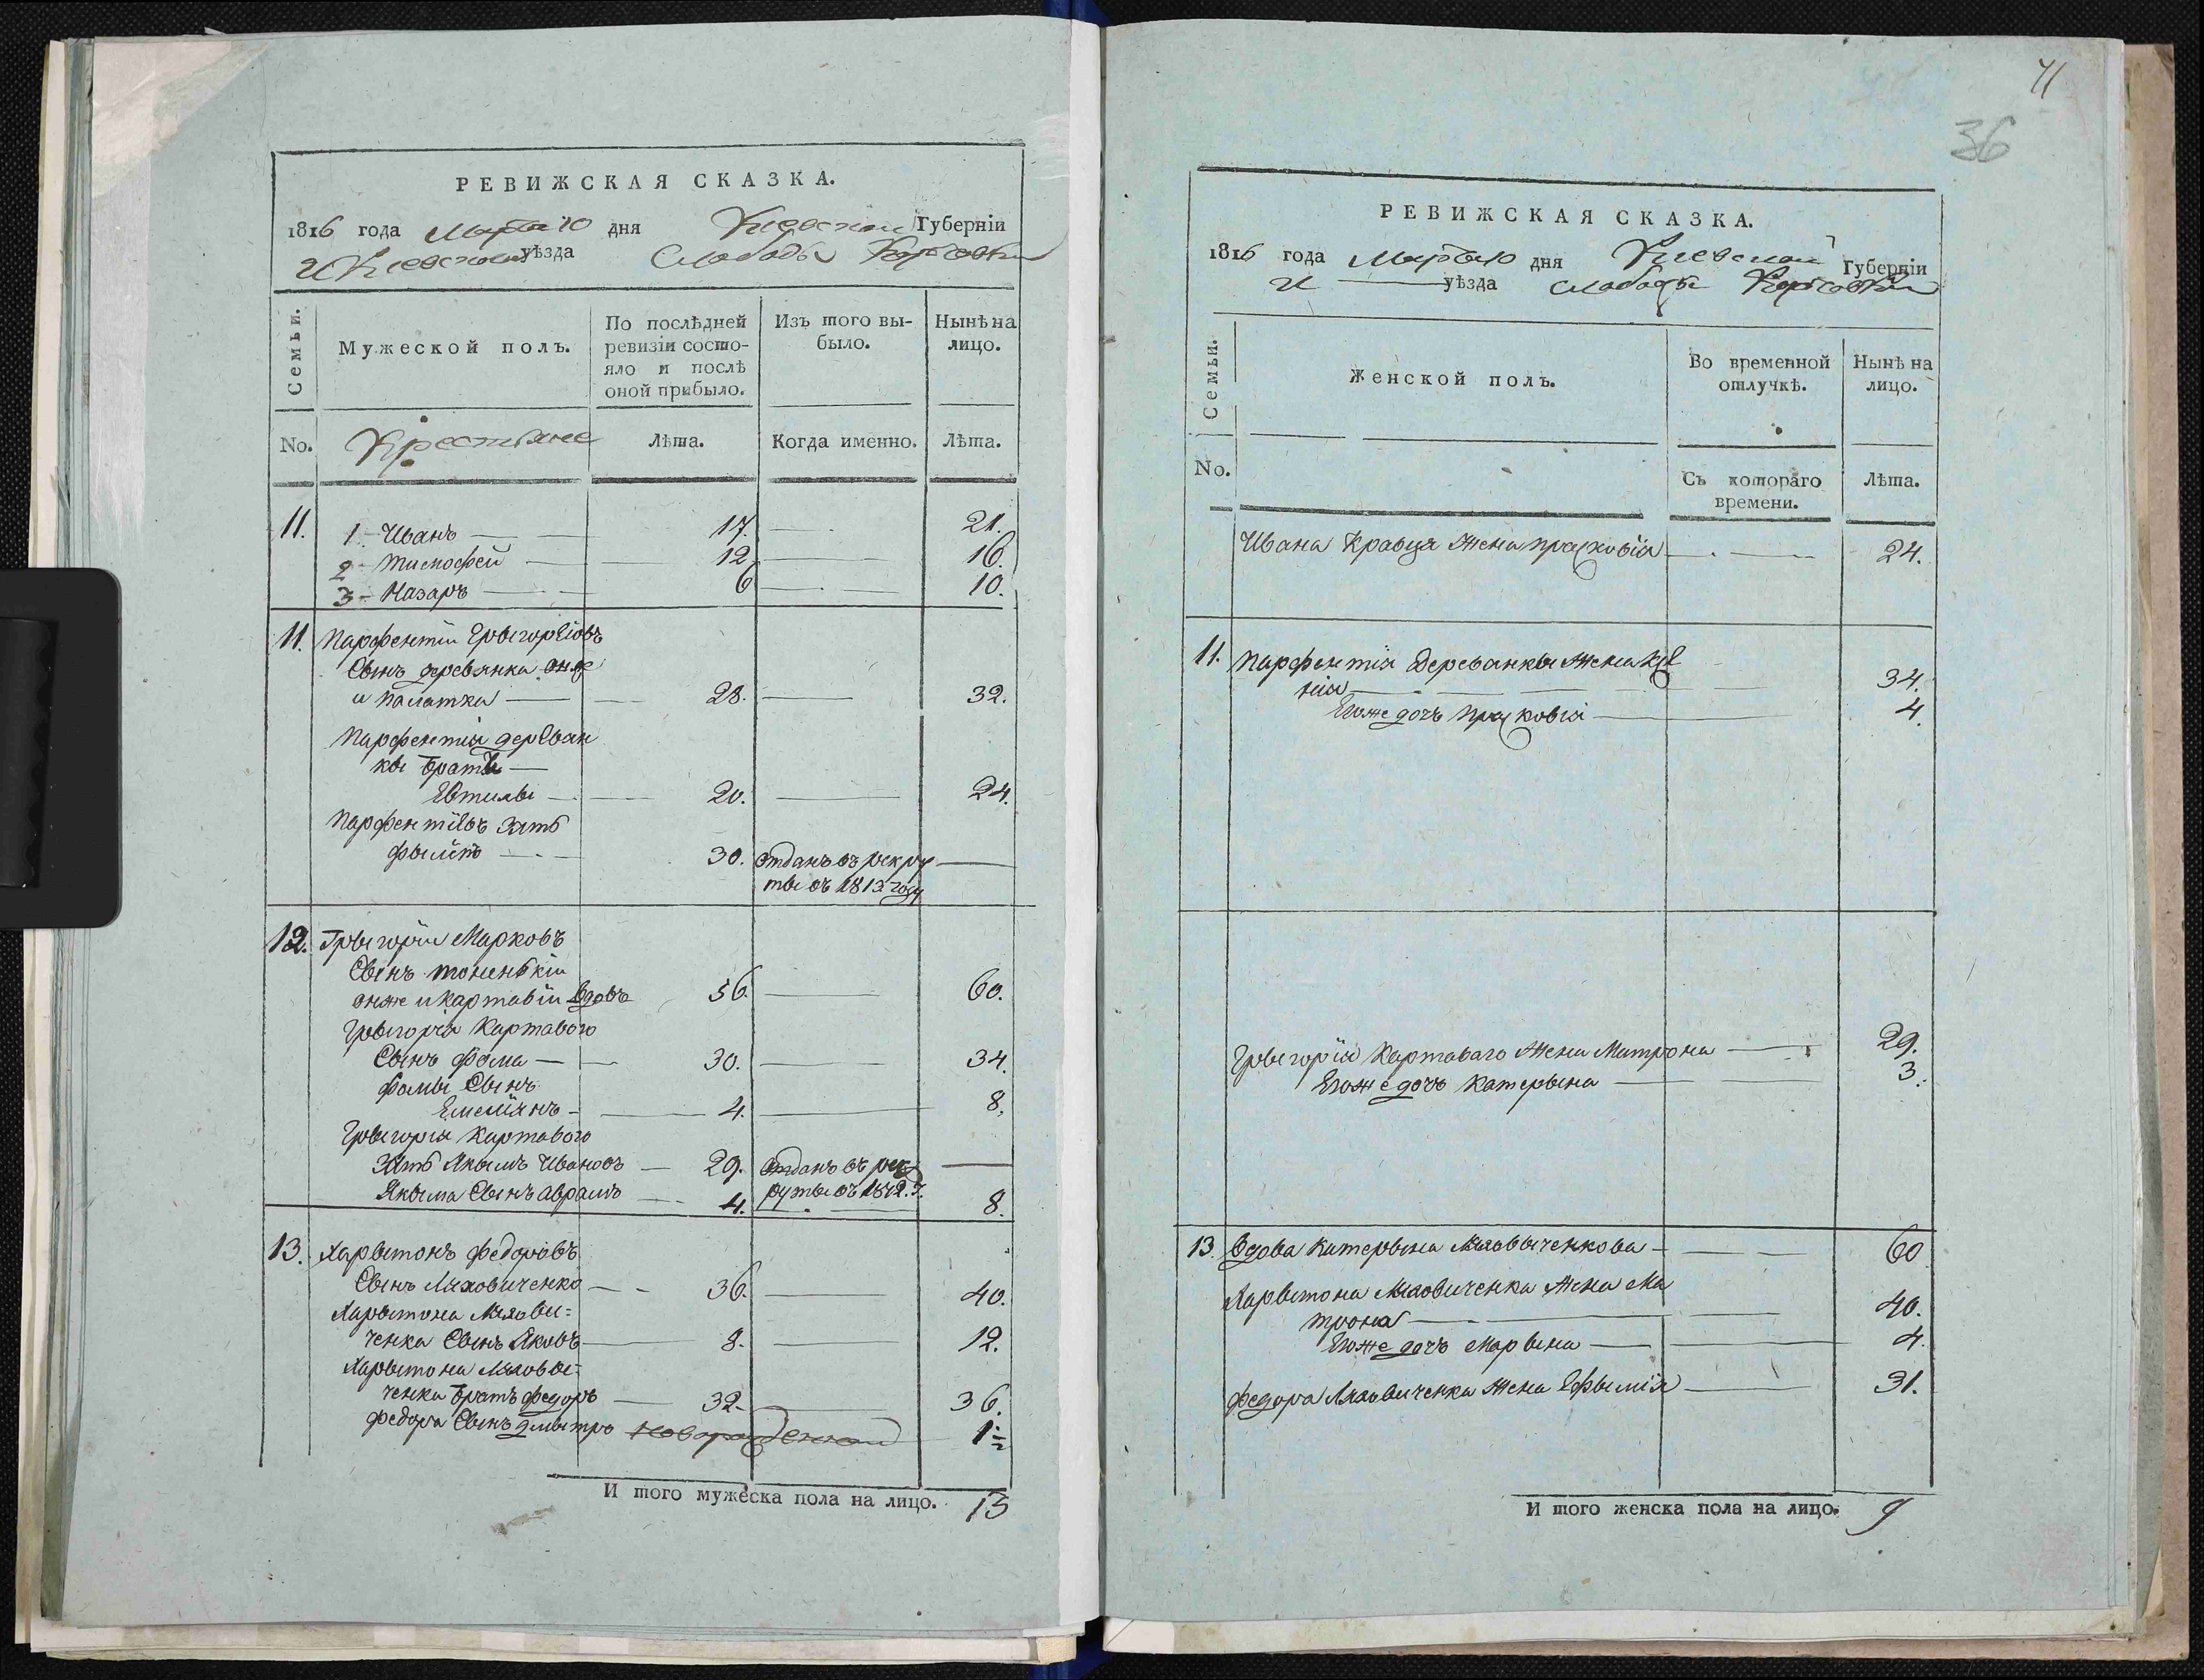 РЕВИЖСКАЯ СКАЗКА.
1816 года Марта 10 дня Киевской Губерніи
и Киевского уѣзда Слободы
Семьи.
Мужеской полъ.
По послѣдней ревизіи состояло и послѣ оной прибыло.
Изъ того выбыло.
Нынѣ на лицо.
No. Крестьяне Лѣта. Когда именно. Лѣта.
11. 1 - Иванъ 17. 21.
2 - Тимофей 12 16.
3 - Назаръ 6 10.
11. Парфентіи Грыгоріевъ
Сынъ деревянка онже
и палатка 28. 32.
Парфентія дереван
кы братъ
Евтихы 20. 24.
Парфентіевъ Зять
30. отданъ въ рекру
ты въ 1813 году
12. Грыгоріи Марковъ
Сынъ тоненькіи
онже и картавіи вдовъ 56. 60.
Грыгорія Картавого
Сынъ Фома 30. 34.
Фомы Сынъ
Емеліянъ 4. 8.
Грыгорія Картавого
Зять Якымъ Ивановъ 29. отданъ въ рек
Якыма Сынъ аврамъ 4. руты въ 1812. г. 8.
13. Харытонъ Федоровъ
Сынъ Ляховиченко 36. 40.
Харытона Ляхови=
ченка Сынъ Яковъ 8. 12.
Харытона Ляховы=
ченка братъ Федоръ 32. 36.
Федора Сынъ дмытро новорожденной 1½
И того мужеска пола на лицо. 13
71
36
РЕВИЖСКАЯ СКАЗКА.
1816 года Марта 10 дня Киевской Губерніи
и уѣзда Слободы
Семьи.
Женской полъ.
Во временной отлучкѣ.
Нынѣ на лицо.
No.
Съ котораго времени.
Лѣта.
Ивана Кравца Жена прасковія 24.
11. Парфентія Дереванкы Жена Ксе
нія 34.
Егоже дочъ Прасковія 4.
Грыгорія Картаваго Жена Матрона 29.
Егоже дочъ Катерына 3.
13. Вдова Катерына Ляховыченкова 60
Харытона Ляховиченка Жена Ма
трона 40.
Егоже дочъ Марына 4.
Федора Ляховиченка Жена Ефымія 31.
И того женска пола на лицо. 9